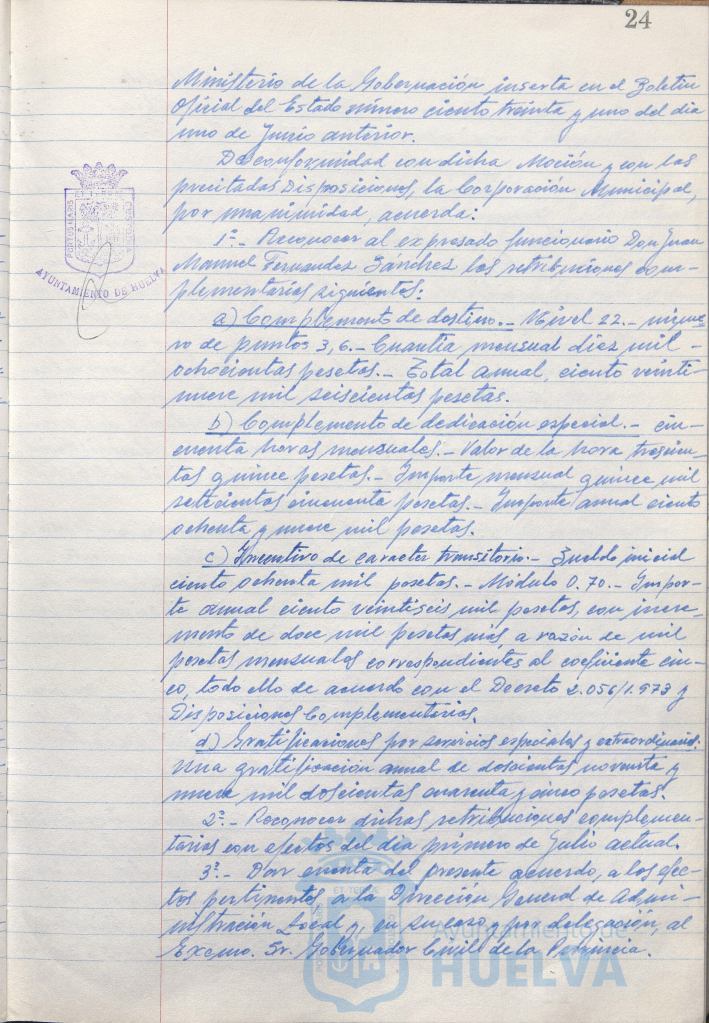 24
Ministerio de la Gobernación inserta en el Boletín
Oficial del Estado número ciento treinta y uno del día
uno de Junio anterior.
De conformidad con dicha Moción y con las
precitadas Disposiciones, la Corporación Municipal,
por unanimidad, acuerda:
1º.- Reconocer al expresado funcionario Don Juan
Manuel Fernandez Sánchez las retribuciones com-
plementarias siguientes:
a) Complemento de destino.- Nivel 22.- núme-
ro de puntos 3,6.- Cuantía mensual diez mil
ochocientas pesetas.- Total anual, ciento veinti-
nueve mil seiscientas pesetas.
b) Complemento de dedicación especial.- cin-
cuenta horas mensuales.- Valor de la hora trescien-
tas quince pesetas.- Importe mensual quince mil
setecientas cincuenta pesetas.- Importe anual ciento
ochenta y nueve mil pesetas.
c) Incentivo de caracter transitorio.- Sueldo inicial
ciento ochenta mil pesetas.- Módulo 0.70.- Impor-
te anual ciento veintiseis mil pesetas, con incre-
mento de doce mil pesetas más, a razón de mil
pesetas mensuales correspondientes al coeficiente cin-
co, todo ello de acuerdo con el Decreto 2.056/1.973 y
Disposiciones Complementarias.
d) Gratificaciones por servicios especiales y extraordinarios.
Una gratificación anual de doscientas noventa y
nueve mil doscientas cuarenta y cinco pesetas.
2º.- Reconocer dichas retribuciones complemen-
tarias con efectos del día primero de Julio actual.
3º.- Dar cuenta del presente acuerdo, a los efec-
tos pertinentes, a la Dirección General de Admi-
nistración Local y, en su caso y por delegación, al
Excmo. Sr. Gobernador Civil de la Provincia.
PORTUS MARIS
CUSTODIA
AYUNTAMIENTO DE HUELVA
Ayuntamiento de
HUELVA